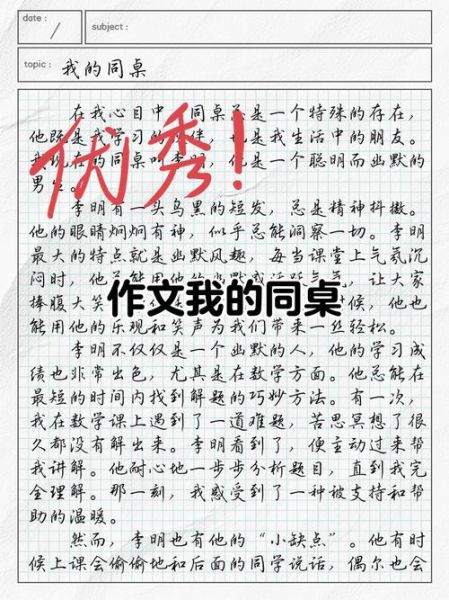 date :
subject :
topic : 我的同桌
在我心目中，同桌总是一个特殊的存在，
他既是我学习的伙伴，也是我生活中的朋友。
我现在的同桌叫李明，他是一个聪明而幽默的
男生。
优秀！
李明有一头乌黑的短发，总是精神抖擞。
他的眼睛炯炯有神，似乎总能洞察一切。李明
最大的特点就是幽默风趣，每当课堂上气氛沉
闷时，他总能用他的幽默感活跃气氛，让大家
捧腹大笑。 候，他也
作文我的同桌
能用他的乐观和笑声为我们带来一丝轻松。
李明不仅仅是一个幽默的人，他的学习成
绩也非常出色，尤其是在数学方面。他总能在
最短的时间内找到解题的巧妙方法。有一次，
我在数学课上遇到了一道难题，苦思冥想了很
久都没有解出来。李明看到了，便主动过来帮
我讲解。他耐心地一步步分析题目，直到我完
全理解。那一刻，我感受到了一种被支持和帮
助的温暖。
然而，李明也有他的“小缺点”。他有时
候上课会偷偷地和后面的同学说话，偶尔也会